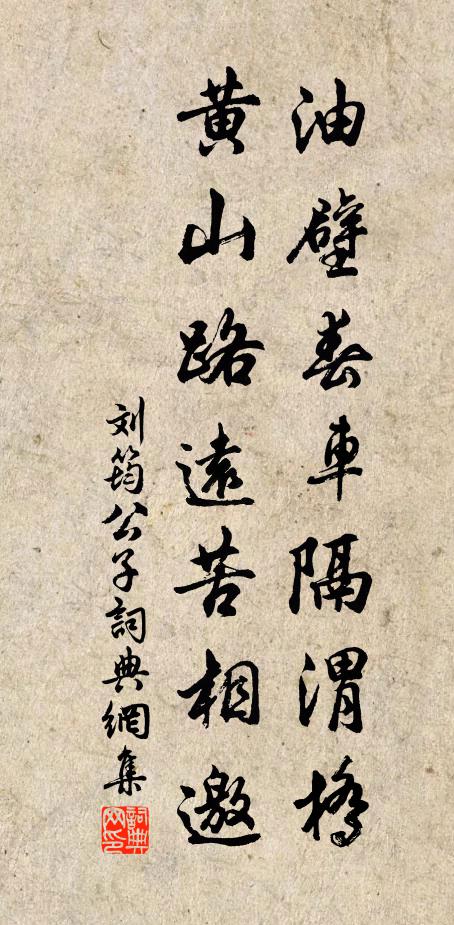 油壁春車隔渭橋
黄山路遠苦相邀
刘筠公子詞典網集
詞典網印